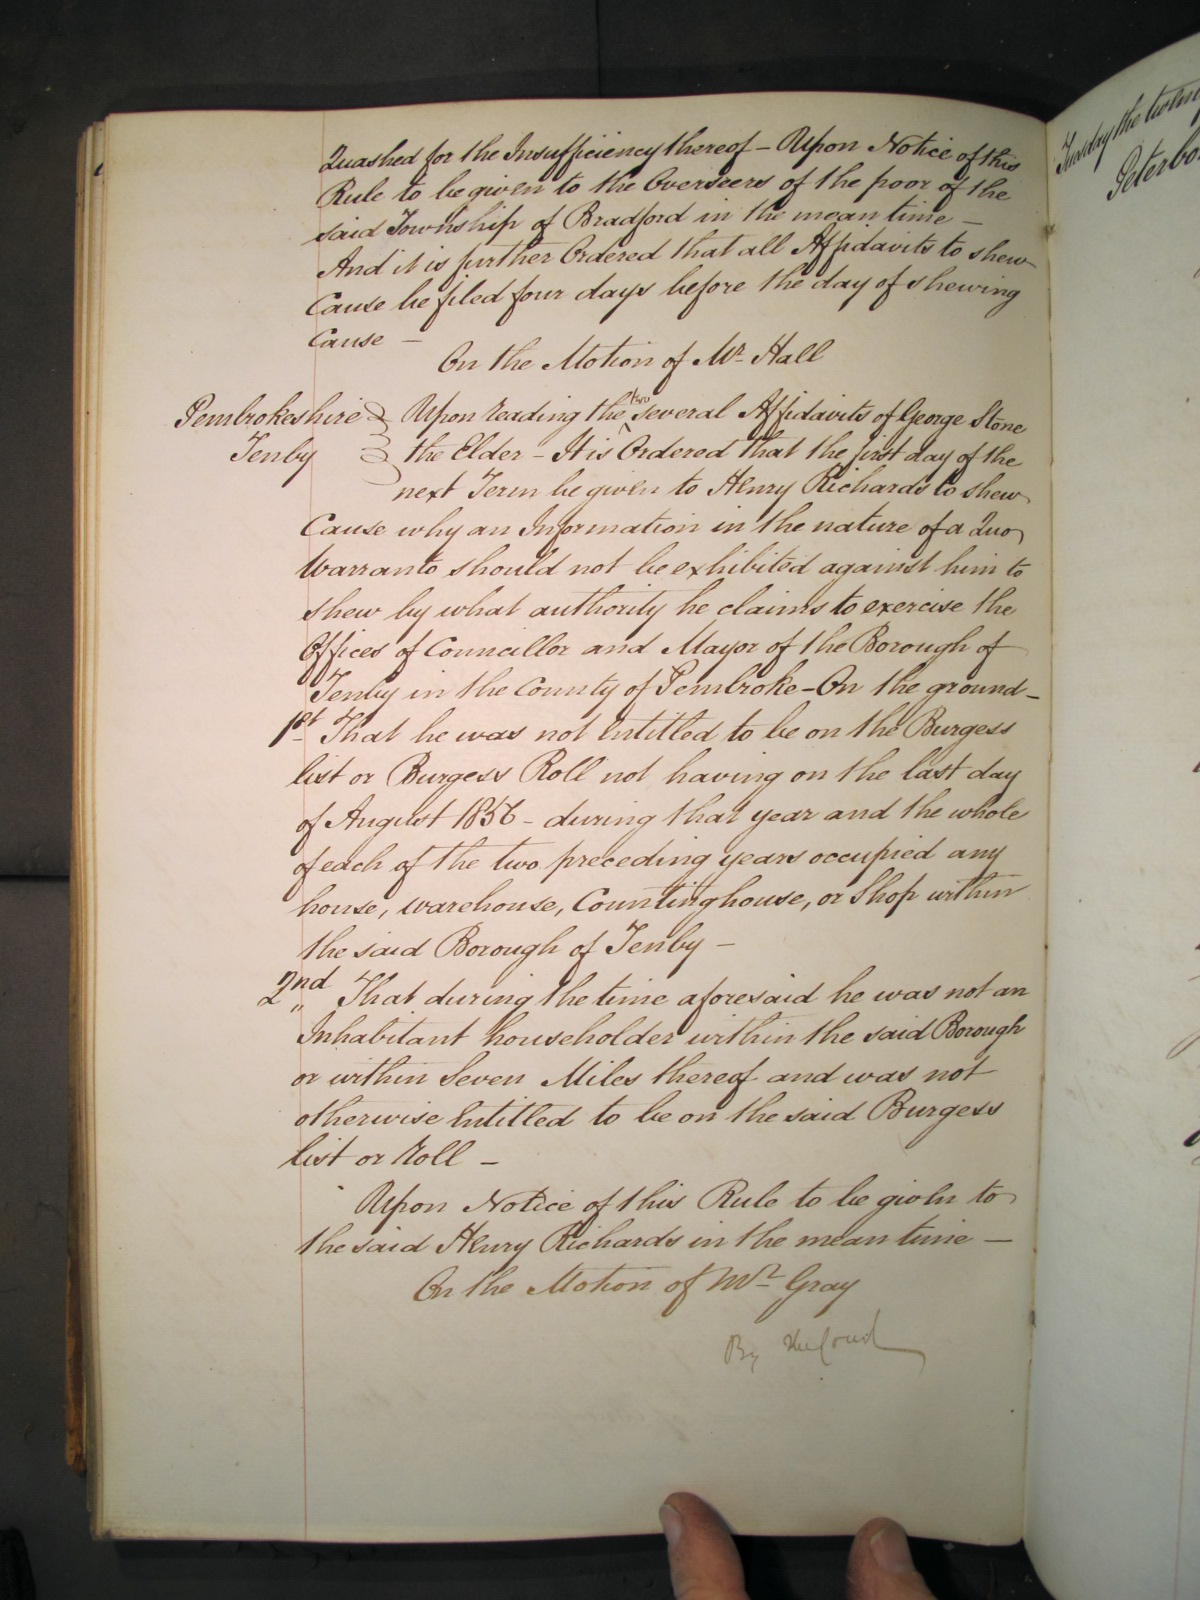 Quashed for the Insufficiency thereof – Upon Notice of this
Rule to be given to the Overseers of the poor of the
said Township of Bradford in the mean time –
And it is further Ordered that all Affidavits to shew
Cause be filed four days before the day of shewing
Cause –
On the Motion of Mr. Hall
Pembrokeshire Upon reading the two several Affidavits of George Stone
Tenby the Elder – It is Ordered that the first day of the
next Term be given to Henry Richards to shew
Cause why an Information in the nature of a Quo
Warranto should not be exhibited against him to
shew by what authority he claims to exercise the
Offices of Councillor and Mayor of the Borough of
Tenby in the County of Pembroke – On the ground –
1st That he was not Entitled to be on the Burgess
list or Burgess Roll not having on the last day
of August 1856 – during that year and the whole
of each of the two preceding years occupied any
house, warehouse, Countinghouse, or Shop within
the said Borough of Tenby –
2nd That during the time aforesaid he was not an
Inhabitant householder within the said Borough
or within Seven Miles thereof and was not
otherwise Entitled to be on the said Burgess
list or Roll –
Upon Notice of this Rule to be given to
the said Henry Richards in the mean time –
On the Motion of Mr. Gray
By the Court
Tuesday the